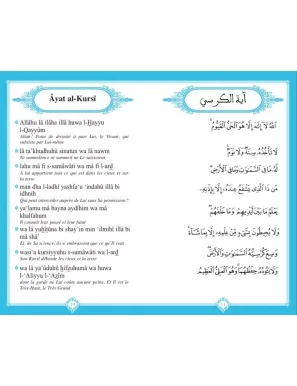 Âyat al-Kursî
Allâhu lâ ilâha illâ huwa l-Ḥayyu
l-Qayyûm
Allah! Point de divinité à part Lui, le Vivant, qui
subsiste par Lui-même
lâ ta'khudhuhû sinatun wa lâ nawm
Ni somnolence ni sommeil ne Le saisissent
lahu mâ fi s-samâwâti wa mâ fi l-arḍ
A lui appartient tout ce qui est dans les cieux et sur
la terre
man dha l-ladhî yashfa'u 'indahû illâ bi
idhnih
Qui peut intercéder auprès de Lui sans Sa permission ?
ya'lamu mâ bayna aydîhim wa mâ
khalfahum
Il connaît leur passé et leur futur
wa lâ yuḥîṭûna bi shay'in min 'ilmihî illâ bi
mâ shâ'
Et, de Sa science, ils n'embrassent que ce qu'Il veut
wasi'a kursiyyuhu s-samâwâti wa l-arḍ
Son Kursî déborde les cieux et la terre
wa lâ ya'ûduhû ḥifẓuhumâ wa huwa
l-'Aliyyu l-'Aẓîm
dont la garde ne Lui coûte aucune peine. Et Il est le
Très-Haut, le Très Grand
آية الكرسي
اللَّهُ لَا إِلَٰهَ إِلَّا هُوَ الْحَيُّ الْقَيُّومُ
لَا تَأْخُذُهُ سِنَةٌ وَلَا نَوْمٌ
لَهُ مَا فِي السَّمَاوَاتِ وَمَا فِي الْأَرْضِ
مَنْ ذَا الَّذِي يَشْفَعُ عِنْدَهُ إِلَّا بِإِذْنِهِ
يَعْلَمُ مَا بَيْنَ أَيْدِيهِمْ وَمَا خَلْفَهُمْ
وَلَا يُحِيطُونَ بِشَيْءٍ مِنْ عِلْمِهِ إِلَّا بِمَا شَاءَ
وَسِعَ كُرْسِيُّهُ السَّمَاوَاتِ وَالْأَرْضَ
وَلَا يَئُودُهُ حِفْظُهُمَا وَهُوَ الْعَلِيُّ الْعَظِيمُ